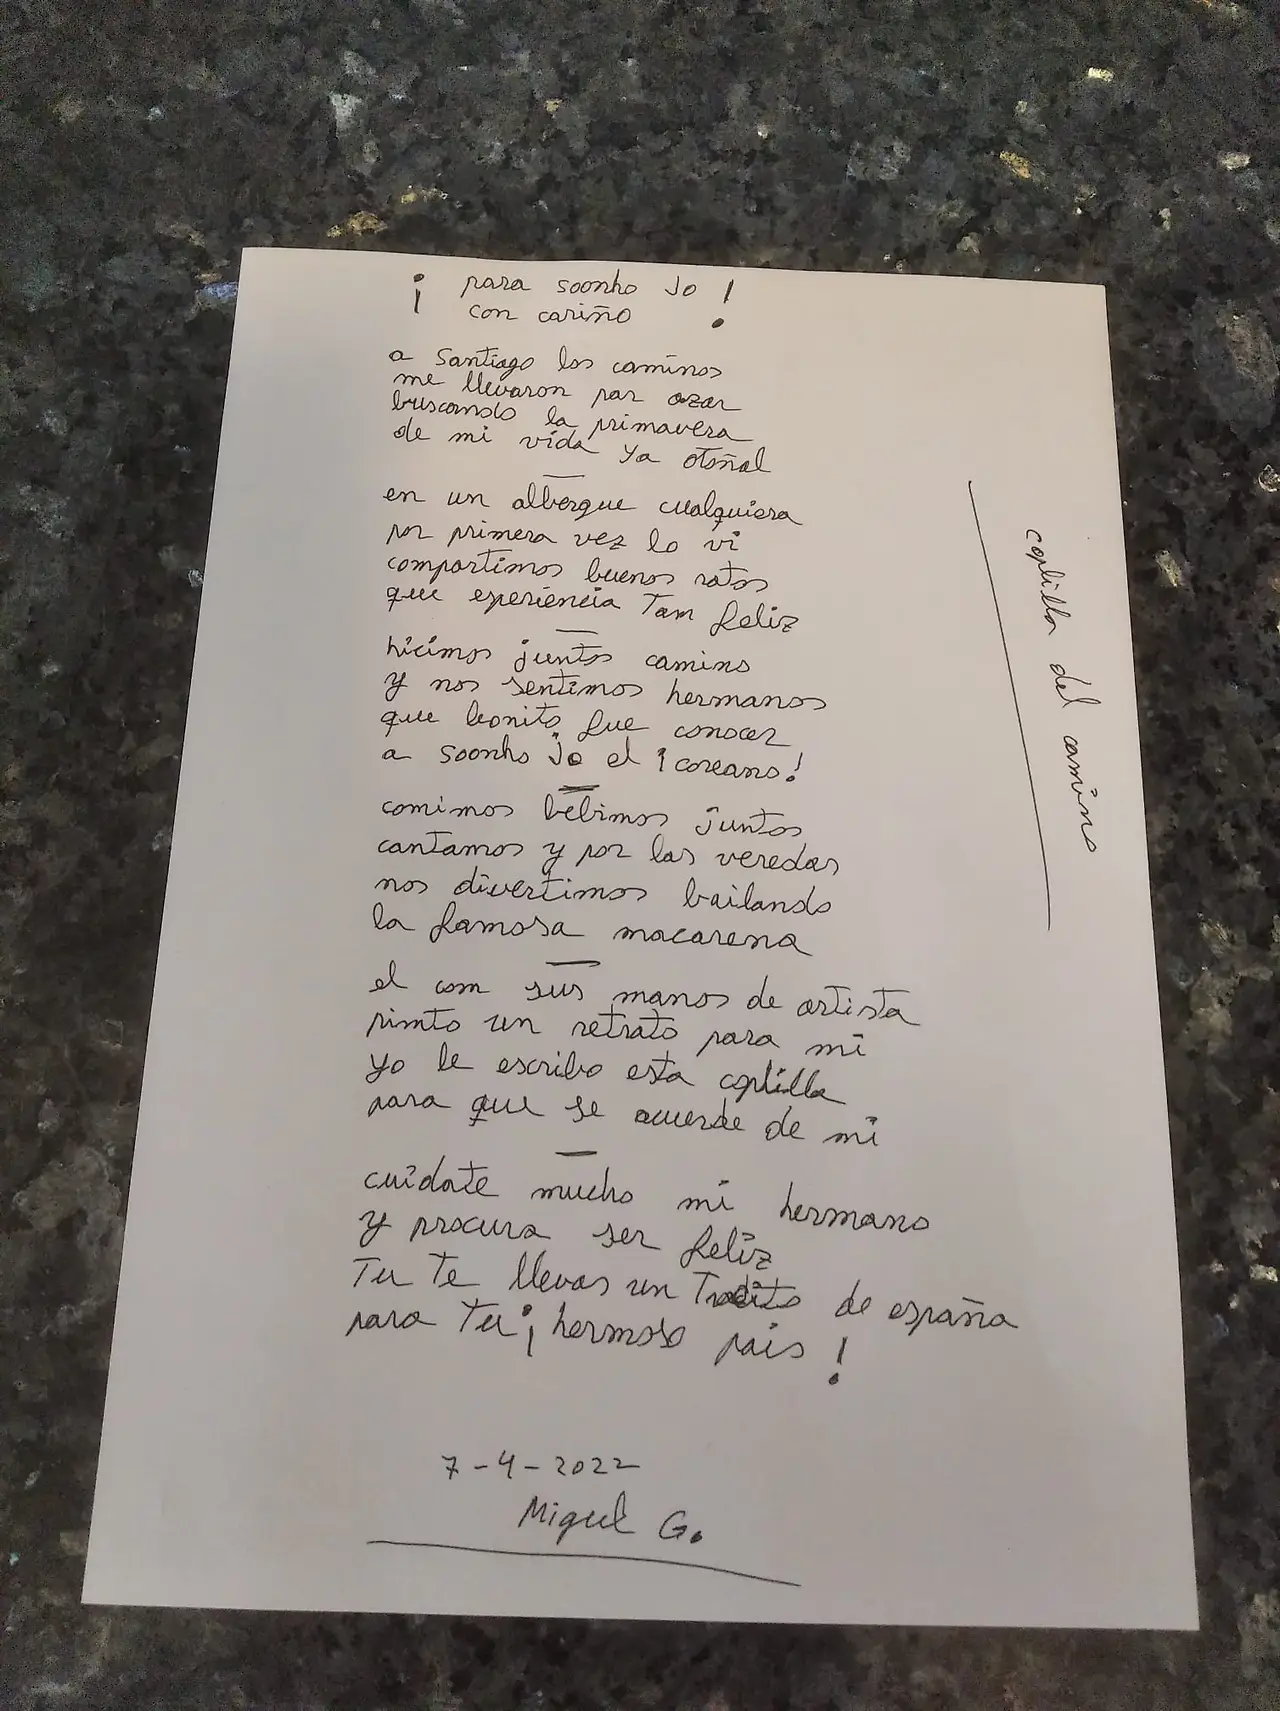 ¡ para soonho Jo !
con cariño
a Santiago los caminos
me llevaron por azar
buscando la primavera
de mi vida ya otoñal
en un albergue cualquiera
por primera vez lo vi
compartimos buenos ratos
que esperiencia Tam feliz
hicimos juntos camino
y nos sentimos hermanos
que bonito fue conocer
a soonho jo el ¡coreano!
comimos bebimos juntos
cantamos y por las veredas
nos divertimos bailando
la famosa macarena
el com sus manos de artista
pimto un retrato para mi
yo le escribo esta coplilla
para que se acuerde de mi
cuidate mucho mi hermano
y procura ser feliz
Tu te llevas un Trocito de españa
para Tu ¡hermoso pais!
7-4-2022
Miguel G.
coplilla del camino